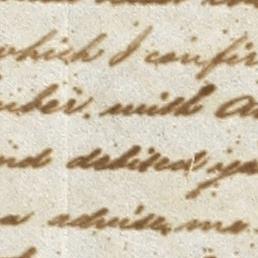 which I confir
mber. with a
and debited yo
a advise, me